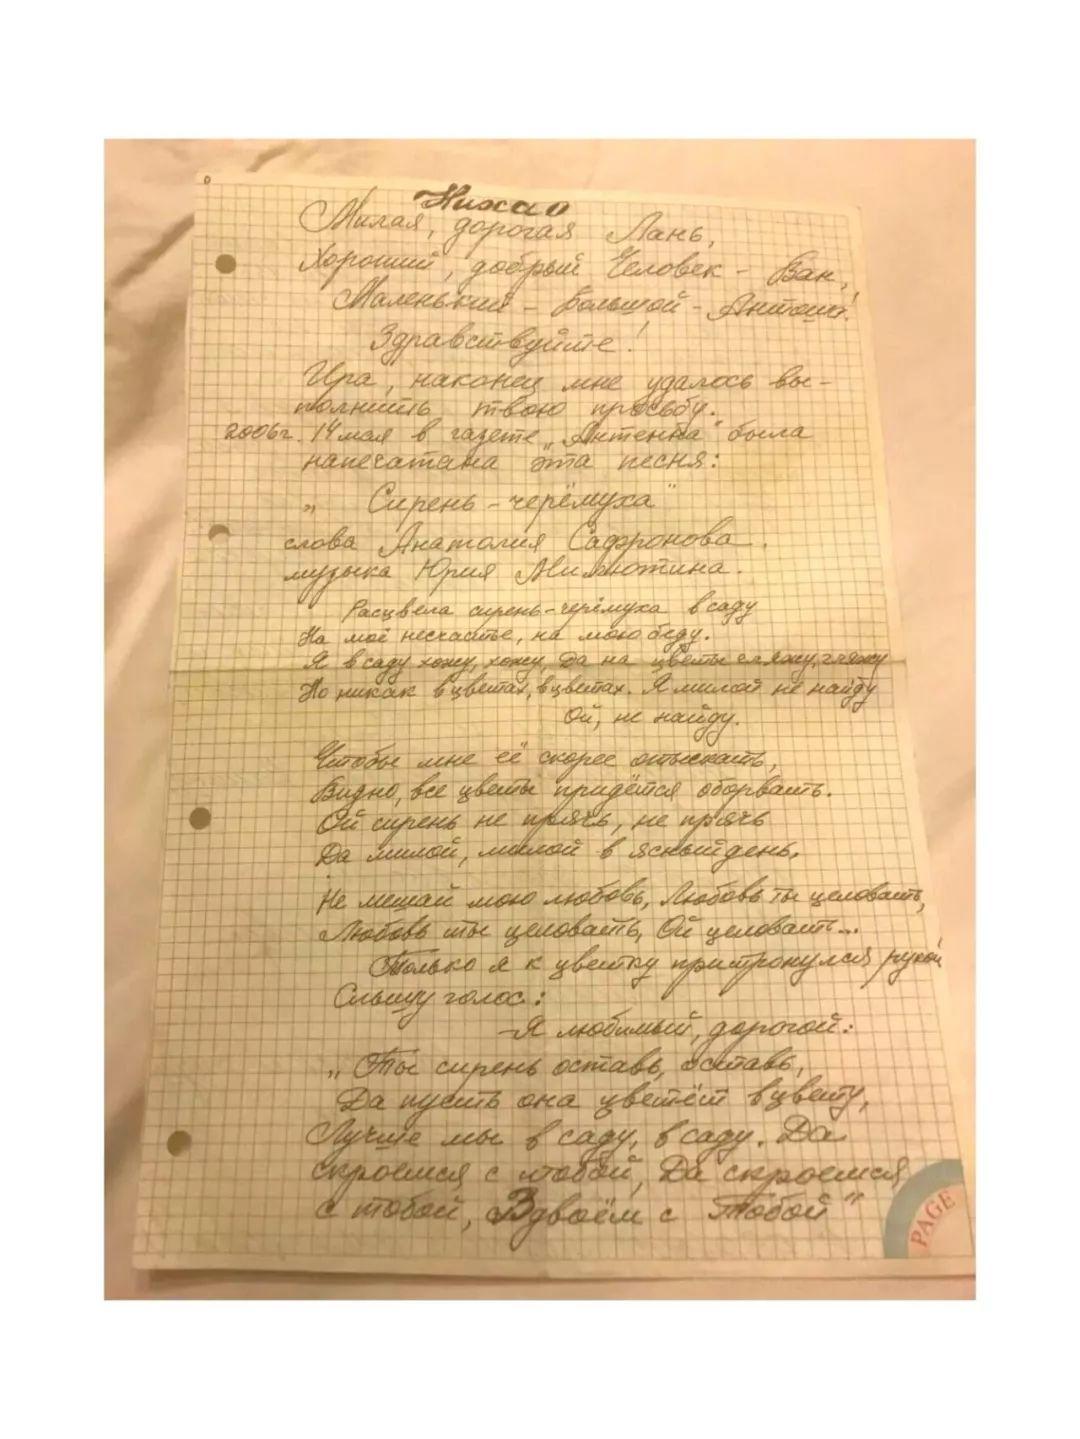 Нихао
Милая, дорогая Лань,
Хороший, добрый Человек - Ван,
Маленький - Большой - Антоша!
Здравствуйте!
Ира, наконец мне удалось вы-
полнить твою просьбу.
2006г. 14 мая в газете „Антенна" была
напечатана эта песня:
„ Сирень - черёмуха"
слова Анатолия Сафронова.
музыка Юрия Милютина.
Расцвела сирень-черёмуха в саду
На моё несчастье, на мою беду.
Я в саду хожу, хожу, Да на цветы гляжу, гляжу
Но никак в цветах, в цветах. Я милой не найду
Ой, не найду.
Чтобы мне её скорее отыскать,
Видно, все цветы придётся оборвать.
Ой сирень не прячь, не прячь
Да милой, милой в ясный день,
Не мешай мою любовь, Любовь ты целовать,
Любовь ты целовать, Ой целовать...
Только я к цветку притронулся рукой
Слышу голос:
-Я любимый, дорогой:
„ Ты сирень оставь, оставь,
Да пусть она цветёт в цвету,
Лучше мы в саду, в саду. Да
скроемся с тобой, Да скроемся
с тобой, Вдвоём с Тобой"
PAGE